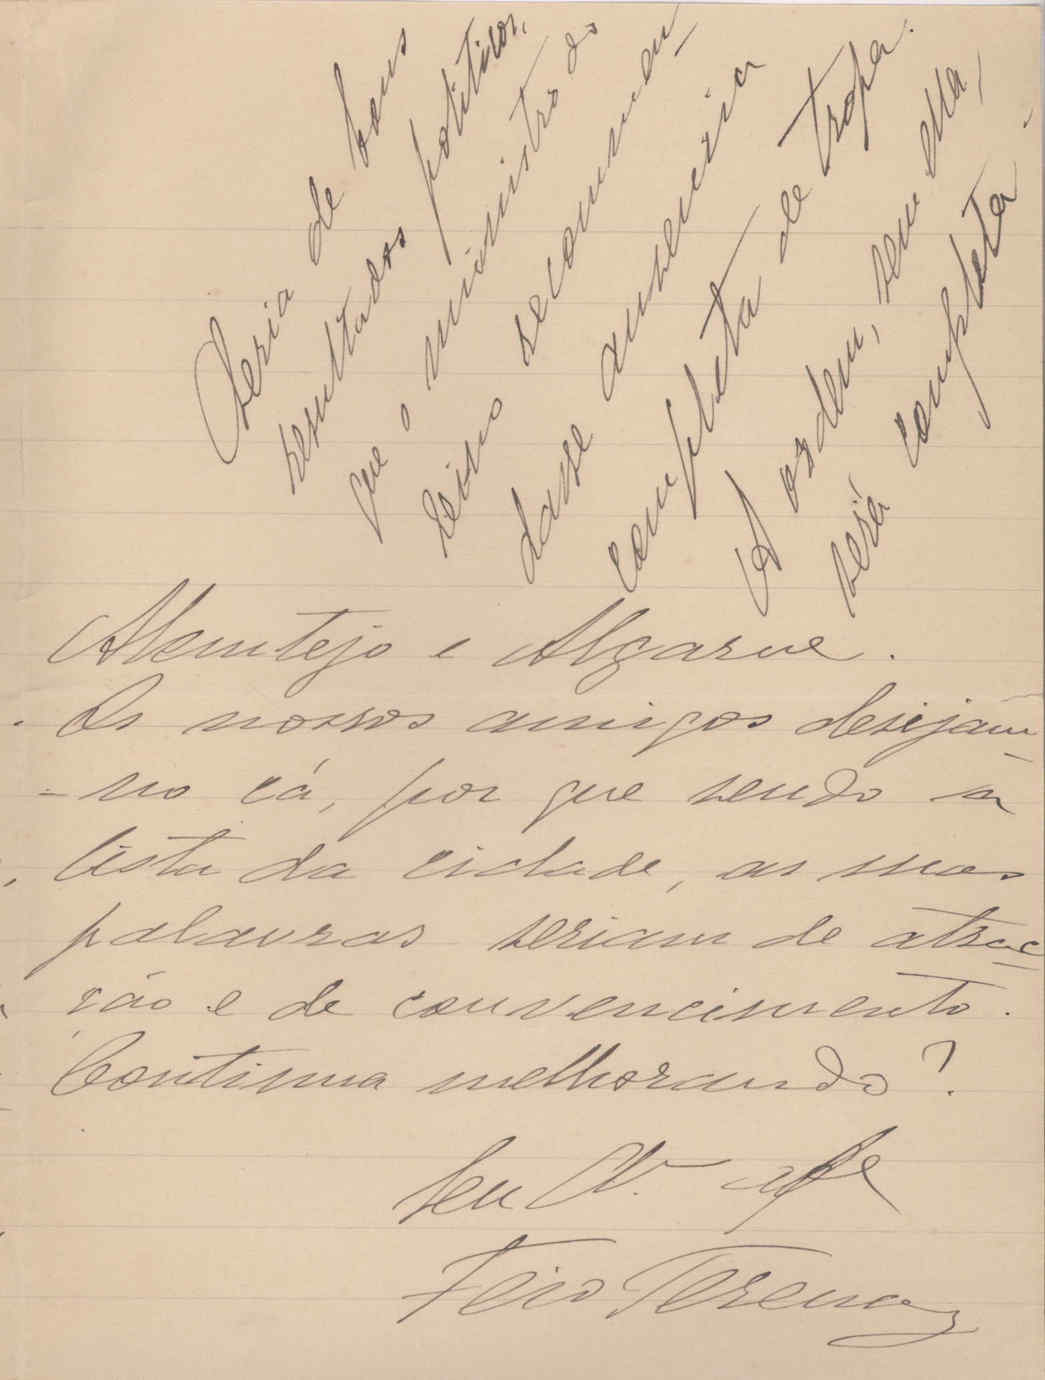 Seria de bons
resultados politicos,
que o ministro do
reino recommen-
dasse ausencia
completa de tropa.
A ordem, sem ella,
será completa.
Alemtejo e Algarve.
Os nossos amigos desejam
-no cá, por que sendo a
lista da cidade, as suas
palavras seriam de atrac-
ção e de convencimento.
Continua melhorando?
Seu
Feio Terenas